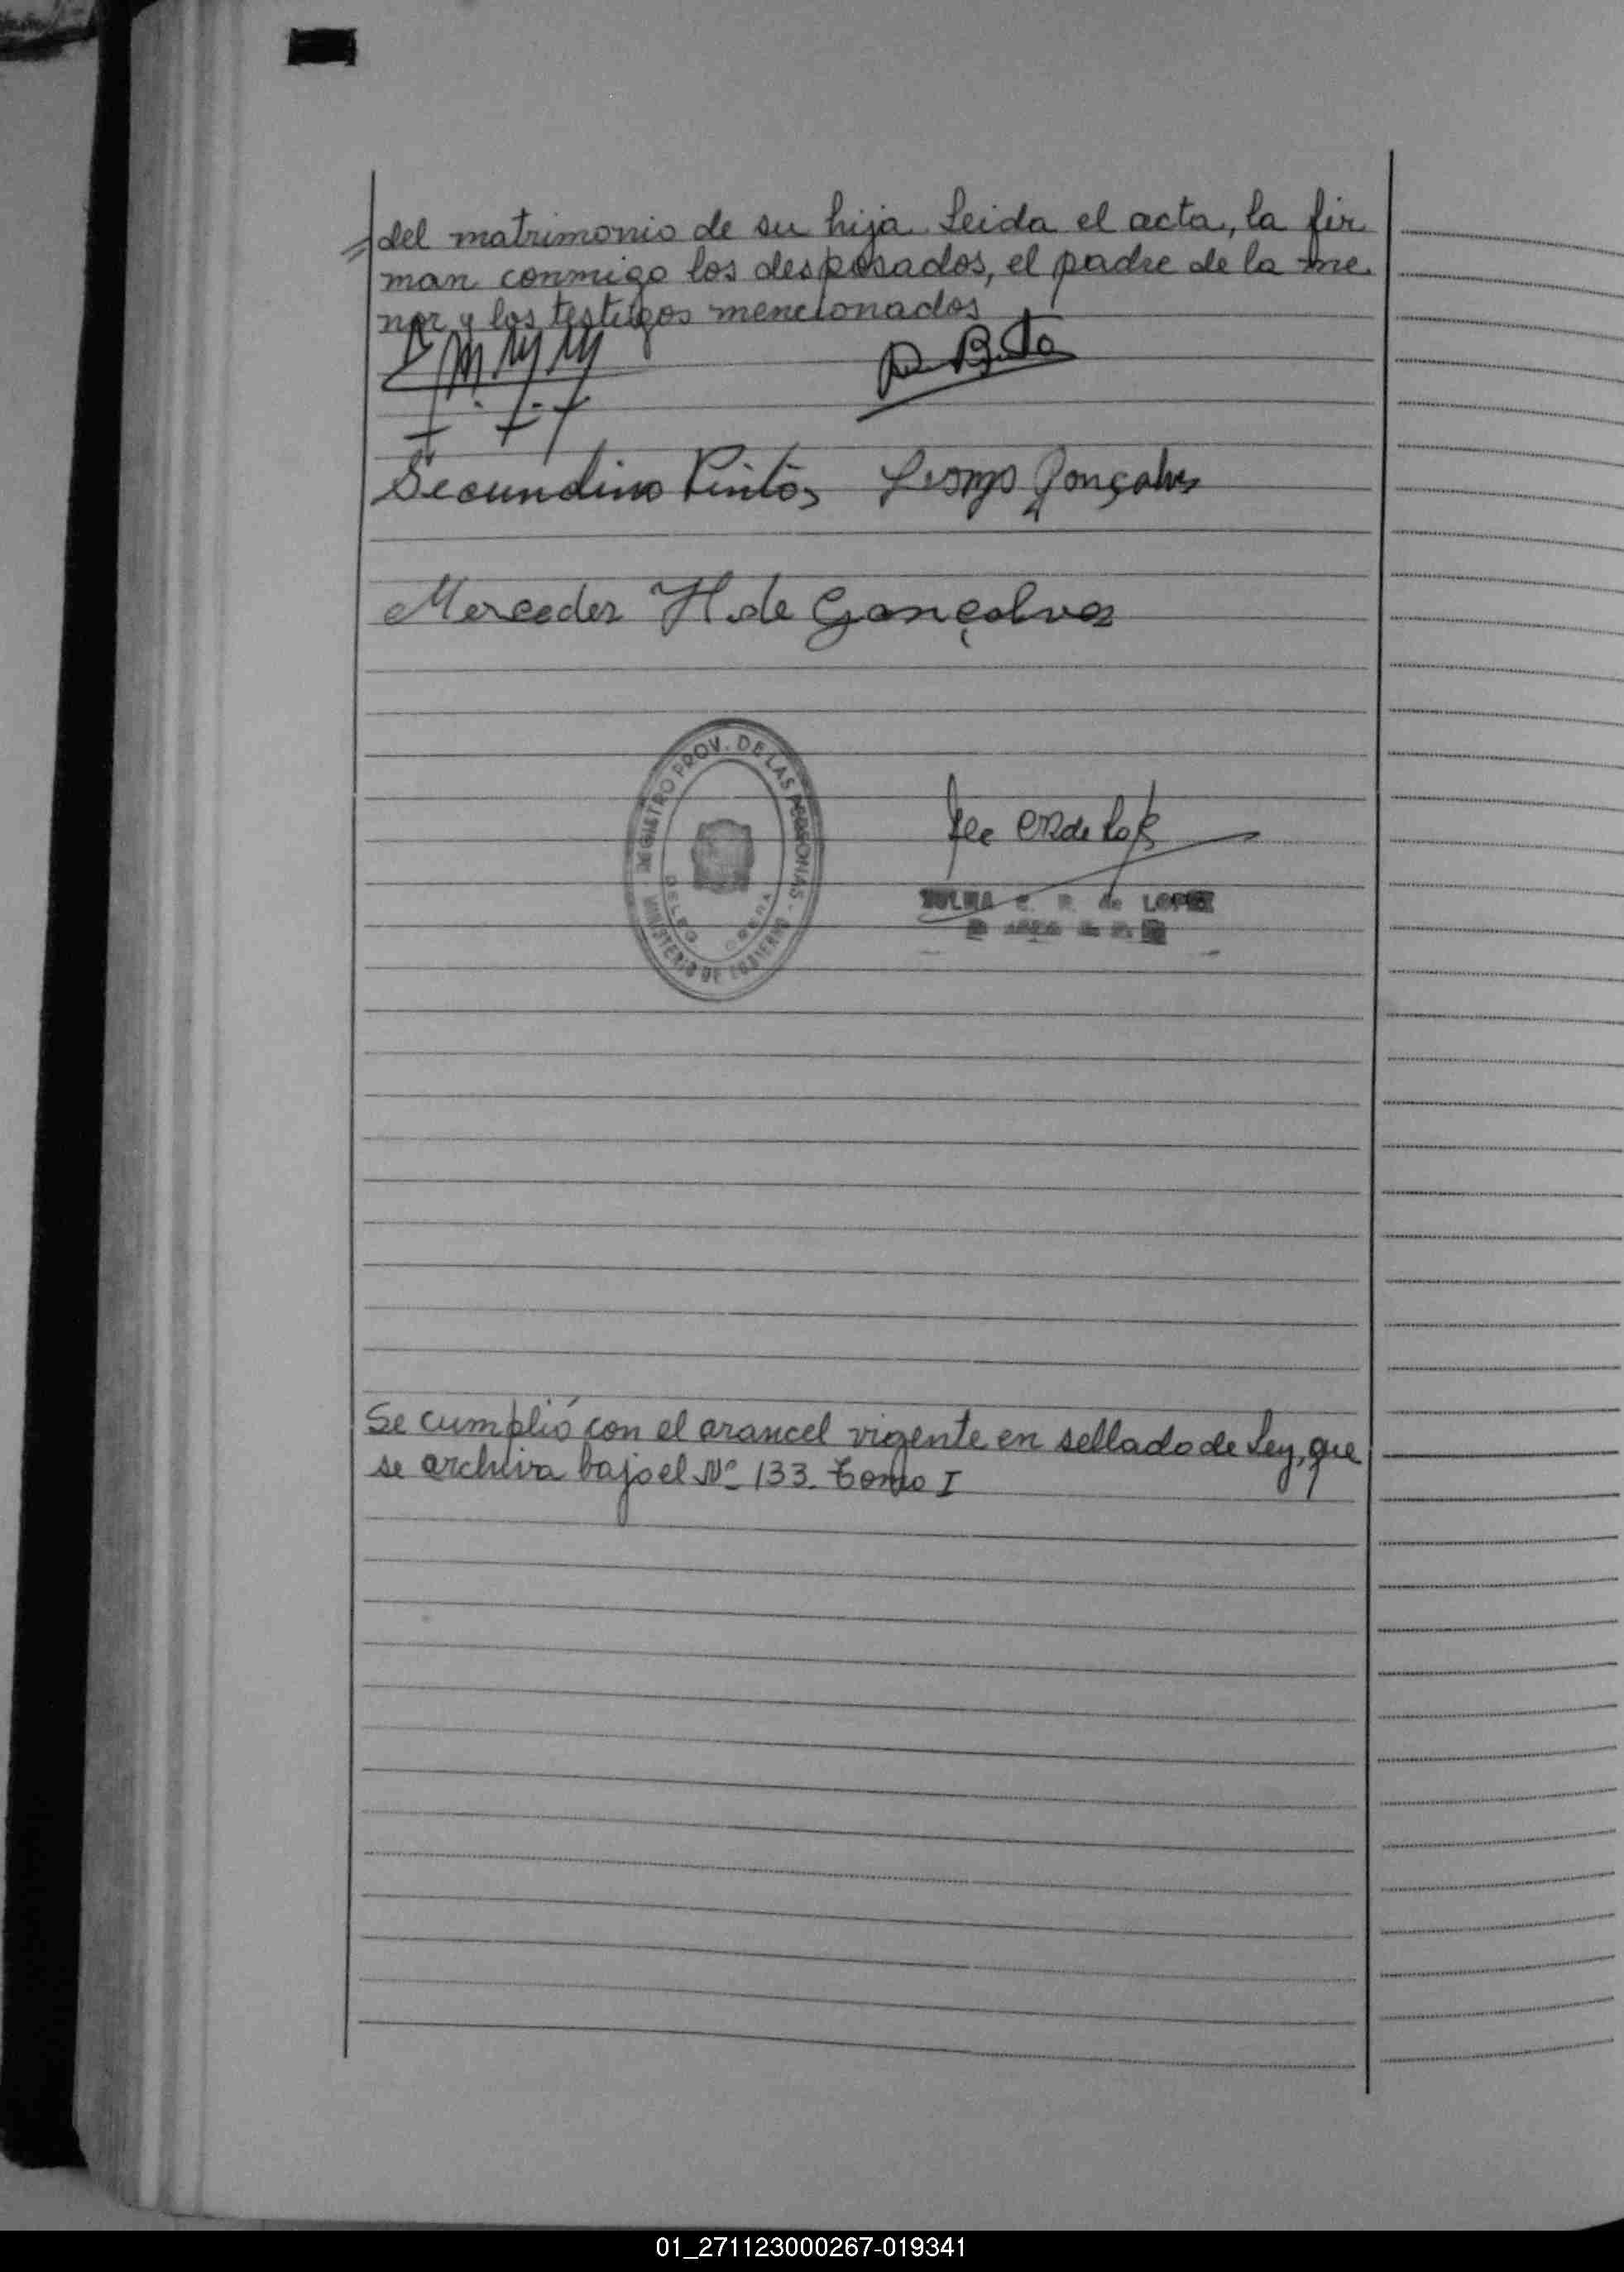 del matrimonio de su hija. Leida el acta, la fir
man conmigo los desposados, el padre de la me.
nor y los testigos mencionados
Secundino Pintos
Gonçalves
Mercedes H de Gonçalves
REGISTRO PROV. DE LAS PERSONAS -
MINISTERIO DE GOBIERNO
DELEG. OBERA
de LOPEZ
Se cumplió con el arancel vigente en sellado de Ley, que
se archiva bajo el Nº 133. Tomo I
01_271123000267-019341